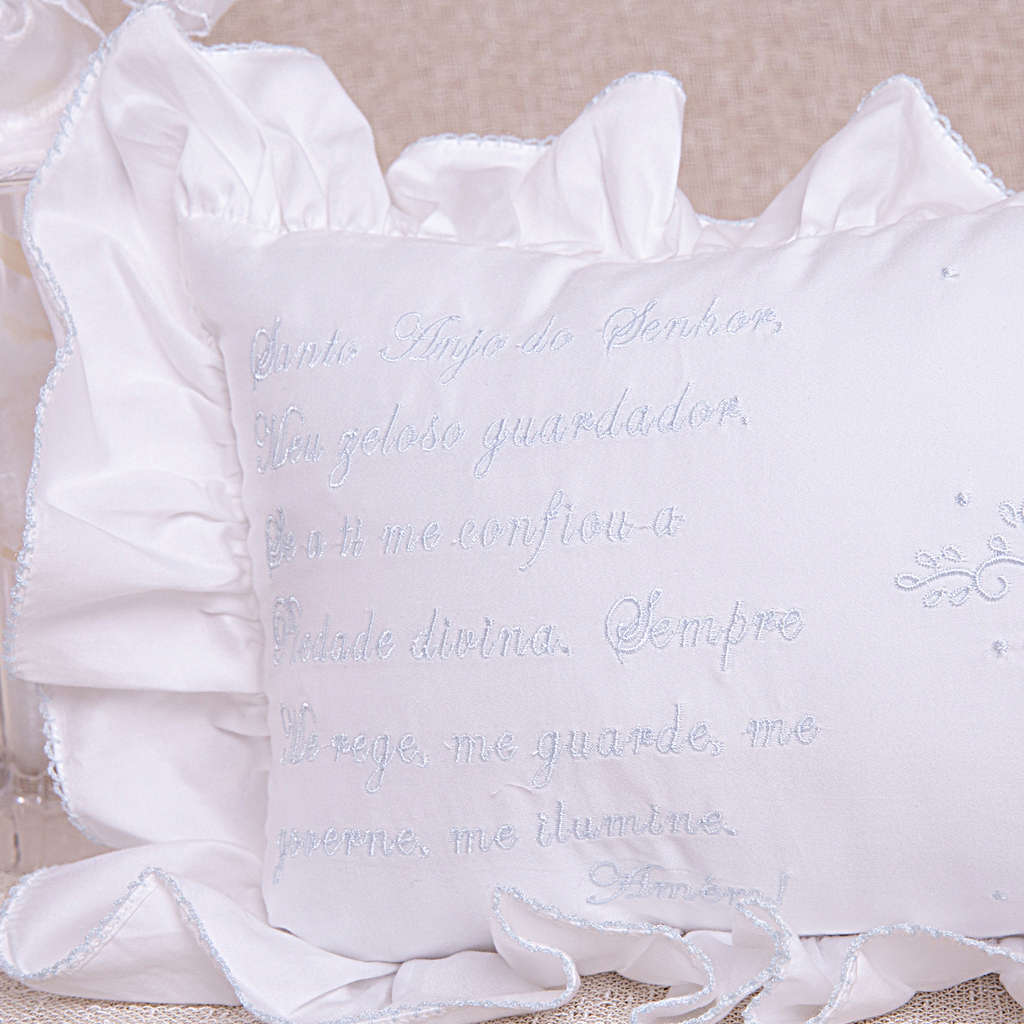 Santo Anjo do Senhor,
Meu zeloso guardador,
Se a ti me confiou a
Piedade divina. Sempre
Me rege, me guarde, me
governe, me ilumine.
Amém!